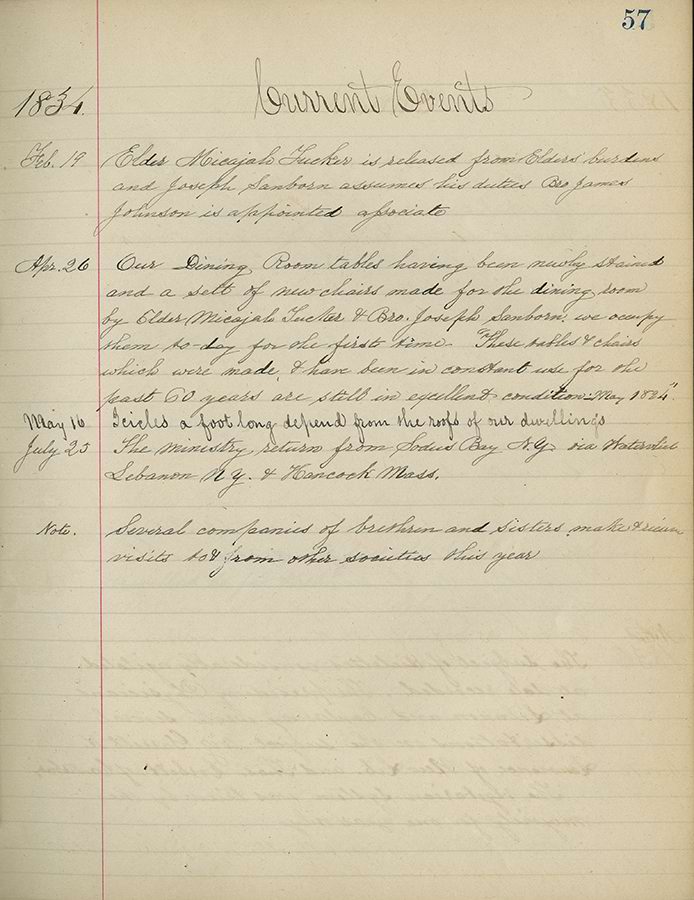 57
Current Events
1834.
Feb. 19 Elder Micajah Tucker is released from Elders burdens
and Joseph Sanborn assumes his duties Bro James
Johnson is appointed associate
Apr. 26 Our Dining Room tables having been newly stained
and a sett of new chairs made for the dining room
by Elder Micajah Tucker & Bro. Joseph Sanborn, we occupy
them to-day for the first time. These tables & chairs
which were made, & have been in constant use for the
past 60 years are still in excellent condition-May 1894."
May 16 Icicles a foot long depend from the roofs of our dwellings
July 25 The Ministry return from Sodus Bay N.Y. via Watervliet
Lebanon N.Y. & Hancock Mass.
Note. Several companies of brethren and sisters make & receive
visits to & from other societies this year